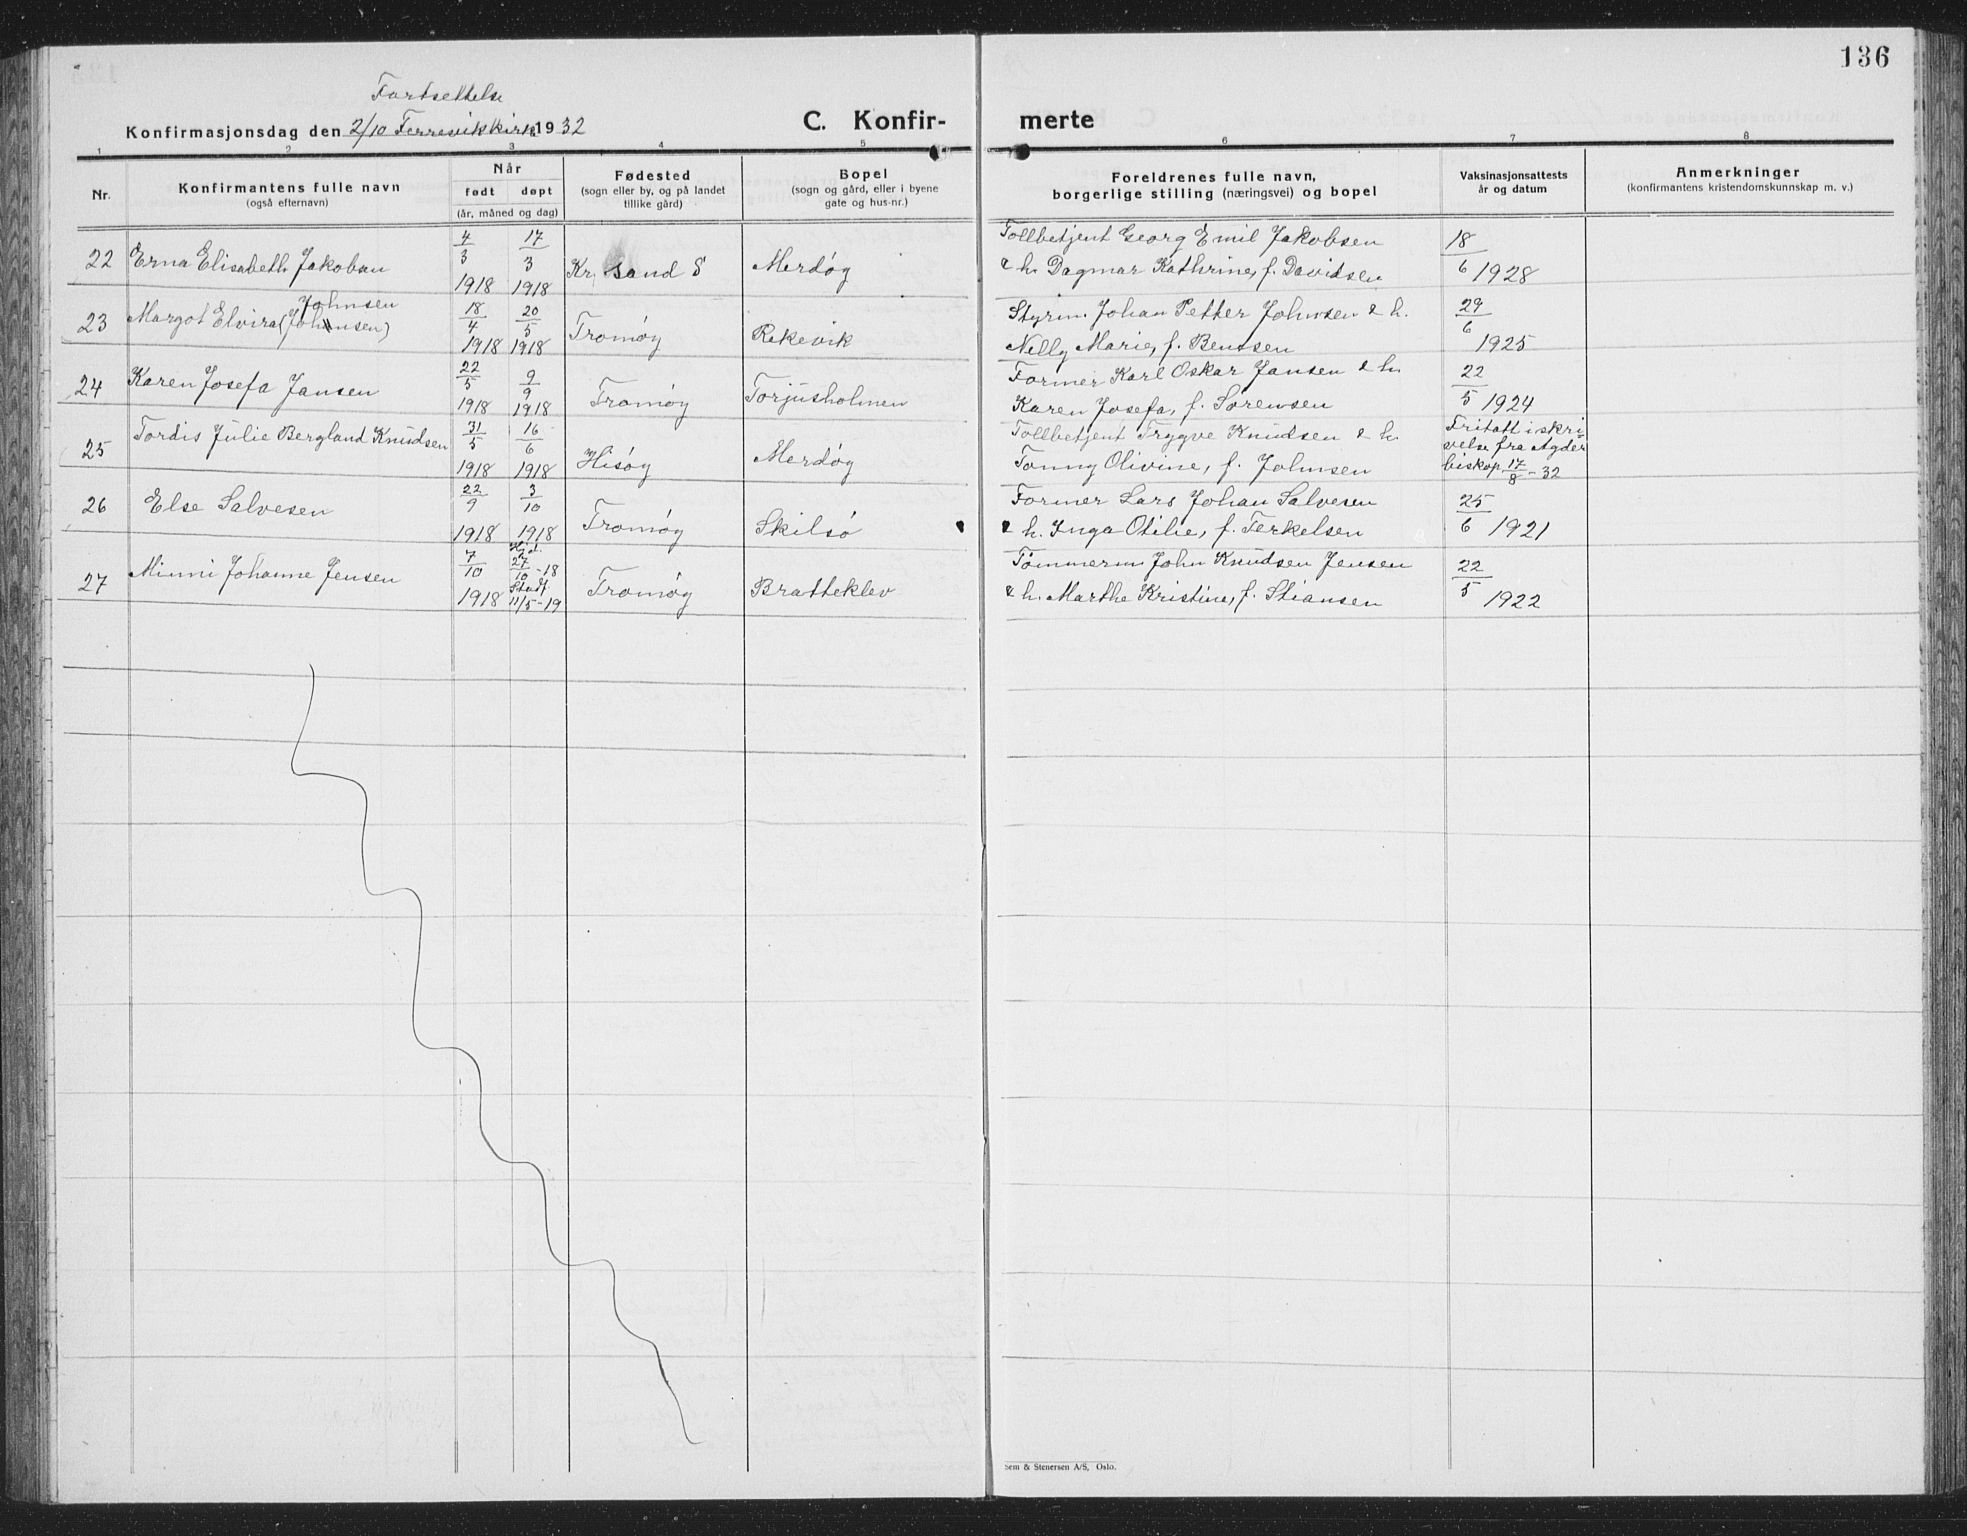 136
Fortsettelse
Konfirmasjonsdag den 2/10 Færrevikkirk 1932
C. Konfir-
merte
1 2 3 4 5 6 7 8
Nr.
Konfirmantens fulle navn
(også efternavn)
Når
født døpt
(år, måned og dag)
Fødested
(sogn eller by, og på landet
tillike gård)
Bopel
(sogn og gård, eller i byene
gate og hus-nr.)
Foreldrenes fulle navn,
borgerlige stilling (næringsvei) og bopel
Vaksinasjonsattests
år og datum
Anmerkninger
(konfirmantens kristendomskunnskap m. v.)
22 Erna Elisabeth Jakobsen 4/3 1918 17/3 1918 Kr. sand S Merdøy
Tollbetjent Georg Emil Jakobsen
& h. Dagmar Kathrine, f. Davidsen
18/6 1928
23 Margot Elvira (Johansen) Johnsen 18/4 1918 20/5 1918 Tromøy Rekevik
Styrm. Johan Petter Johnsen & h.
Nelly Marie, f. Bentsen
29/6 1925
24 Karen Josefa Jansen 22/5 1918 9/9 1918 Tromøy Torjusholmen
Former Karl Oskar Jansen & h.
Karen Josefa, f. Sørensen
22/5 1924
25 Tordis Julie Bergland Knudsen 31/5 1918 16/6 1918 Hisøy Merdøy
Tollbetjent Trygve Knudsen & h.
Tonny Olivine, f. Johnsen
Fritatt i skri-
velse fra Agder
biskop 17/8-32
26 Else Salvesen 22/9 1918 3/10 1918 Tromøy Skilsø
Former Lars Johan Salvesen
& h. Inga Otilie, f. Terkelsen
25/6 1921
27 Minni Johanne Jensen 7/10 1918 Hjd. 27/10-18 Stadf. 11/5-19 Tromøy Bratteklev
Tømmerm. John Knudsen Jensen
& h. Marthe Kristine, f. Stiansen
22/5 1922
Sem & Stenersen A/S, Oslo.